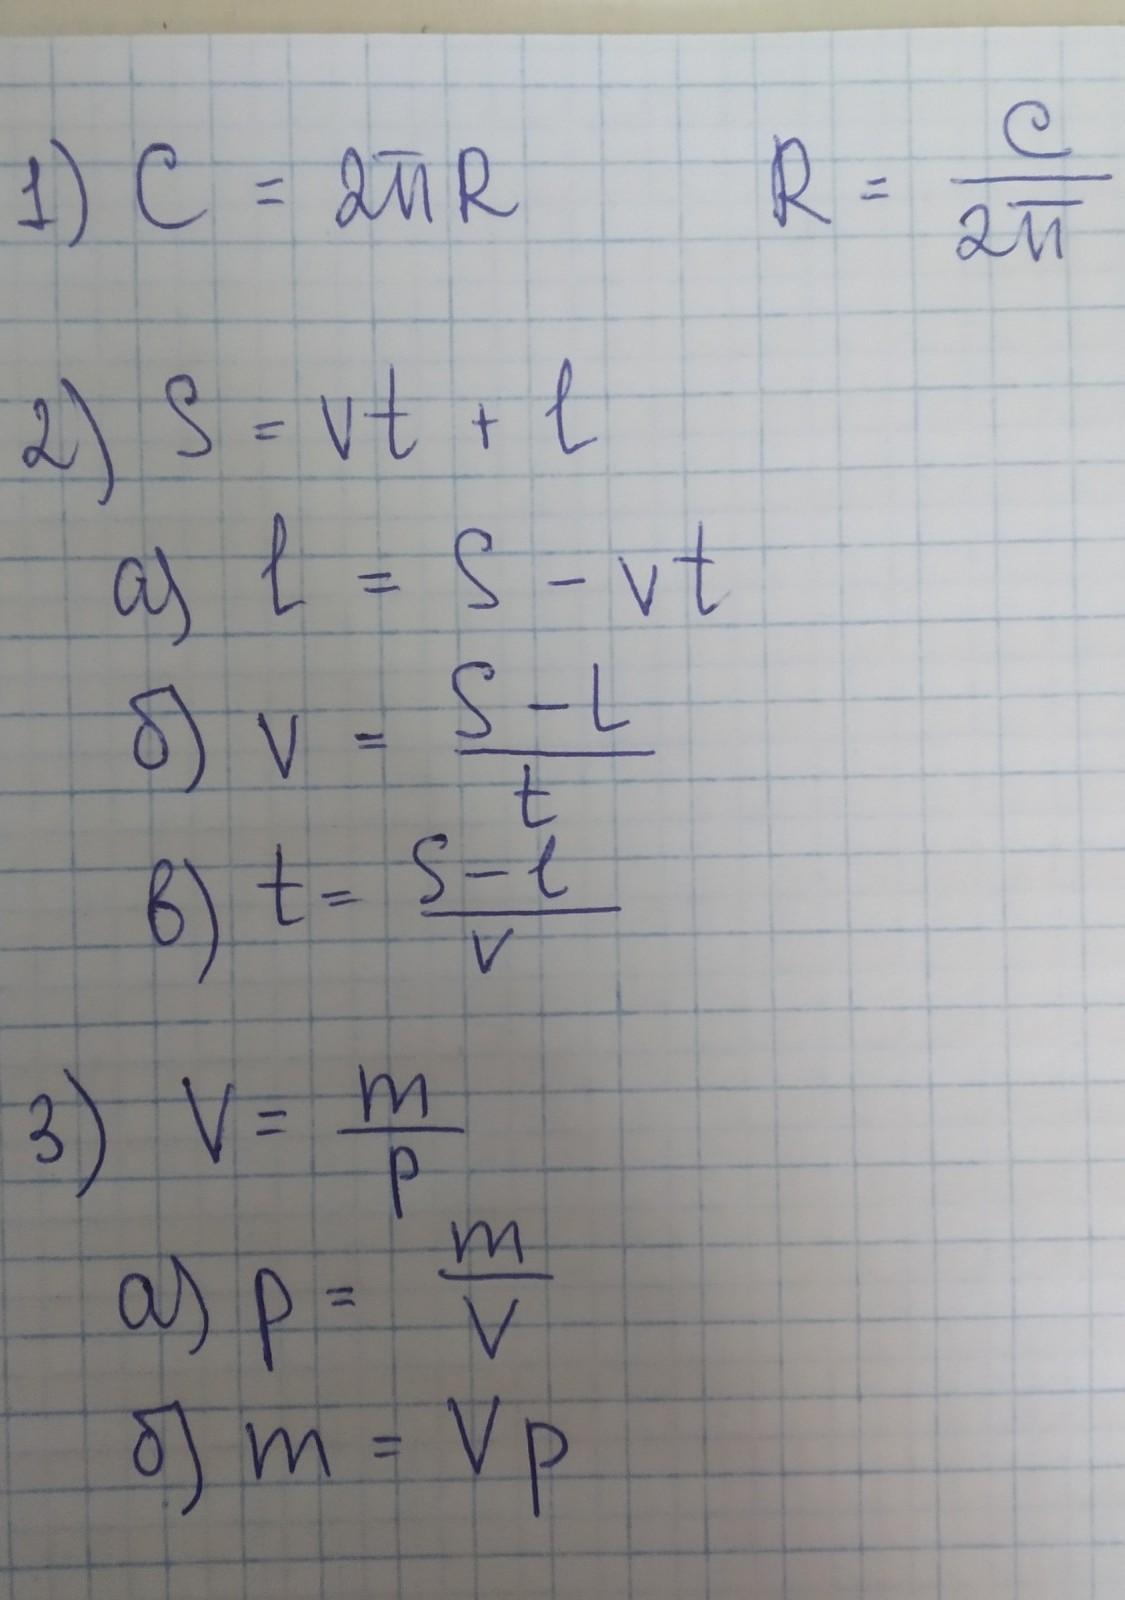 1) C = 2πR R = C/2π
2) S = vt + l
а) l = S - vt
б) v = S - L/t
в) t = S - l/v
3) V = m/p
а) p = m/V
б) m = Vp